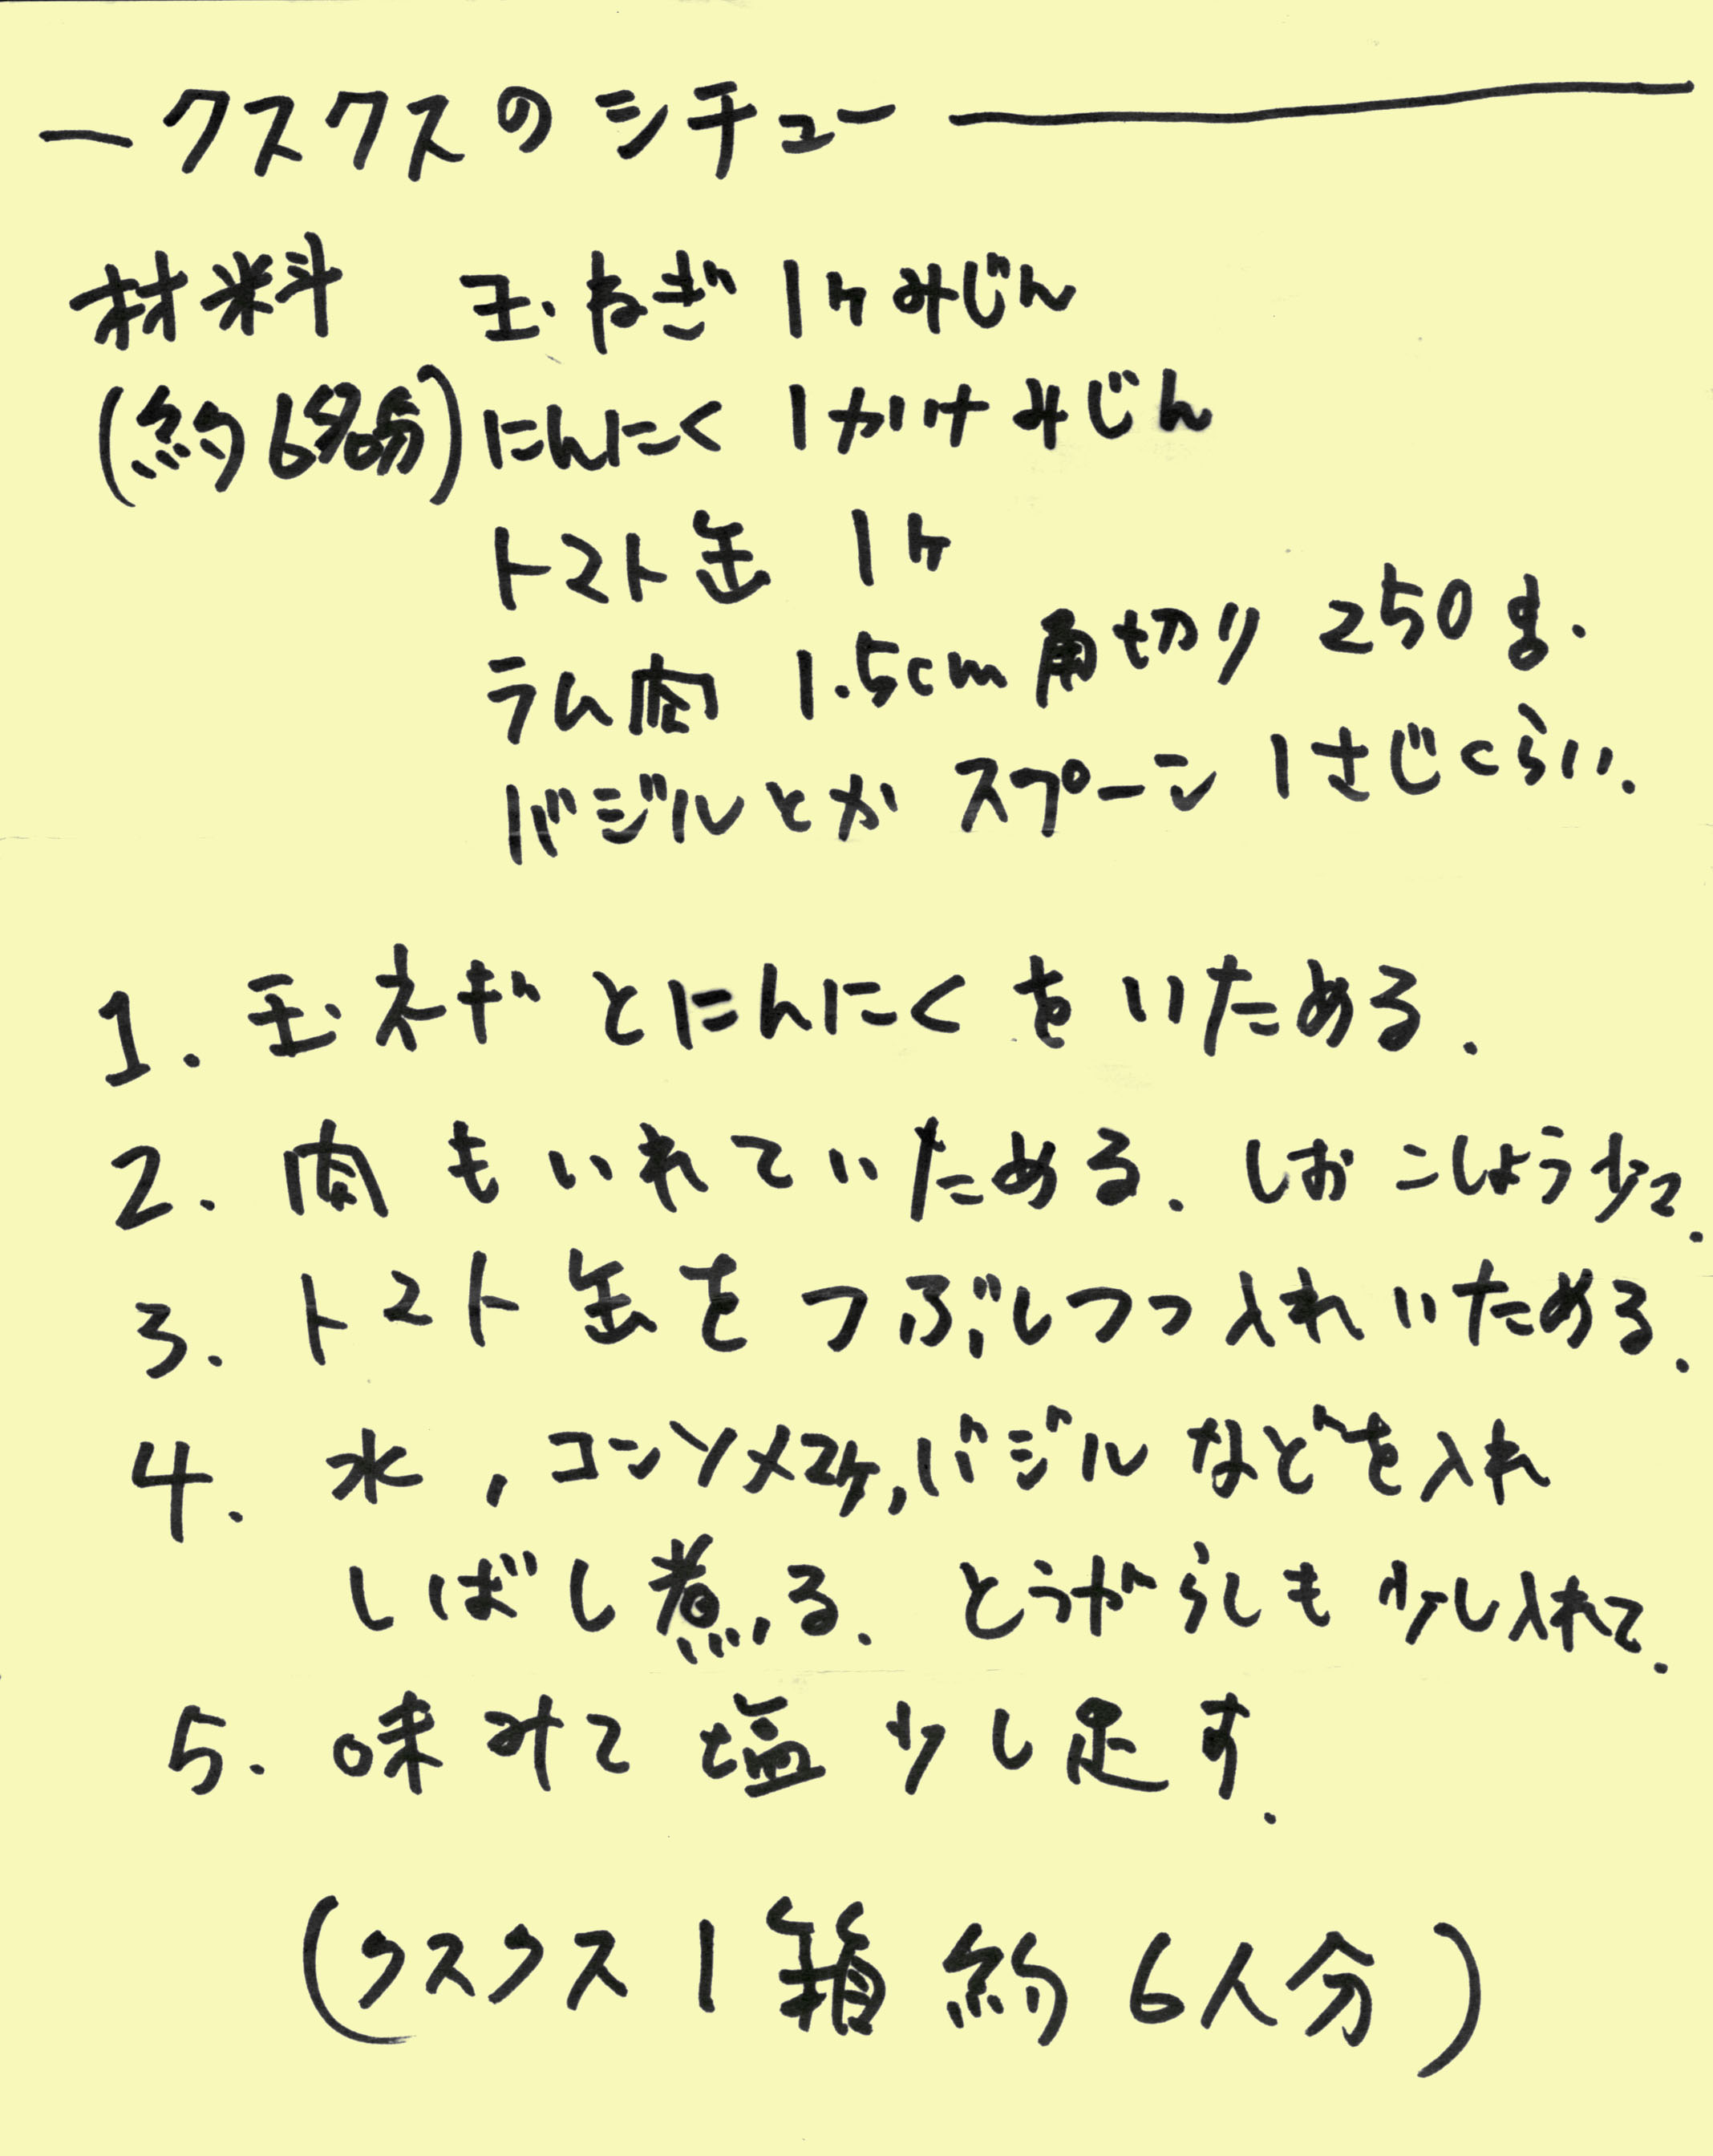 クスクスのシチュー
材料 玉ねぎ 1ケみじん
(約6名分) にんにく 1かけみじん
トマト缶 1ケ
ラム肉 1.5cm角切り 250g.
バジルとか スプーン 1さじくらい.
1. 玉ネギとにんにくをいためる.
2. 肉もいれていためる. しおこしょう少々.
3. トマト缶をつぶしつつ入れいためる.
4. 水, コンソメ2ケ, バジルなどを入れ
しばし煮る. とうがらしも少し入れて.
5. 味みて塩少し足す.
(クスクス1箱 約6人分)